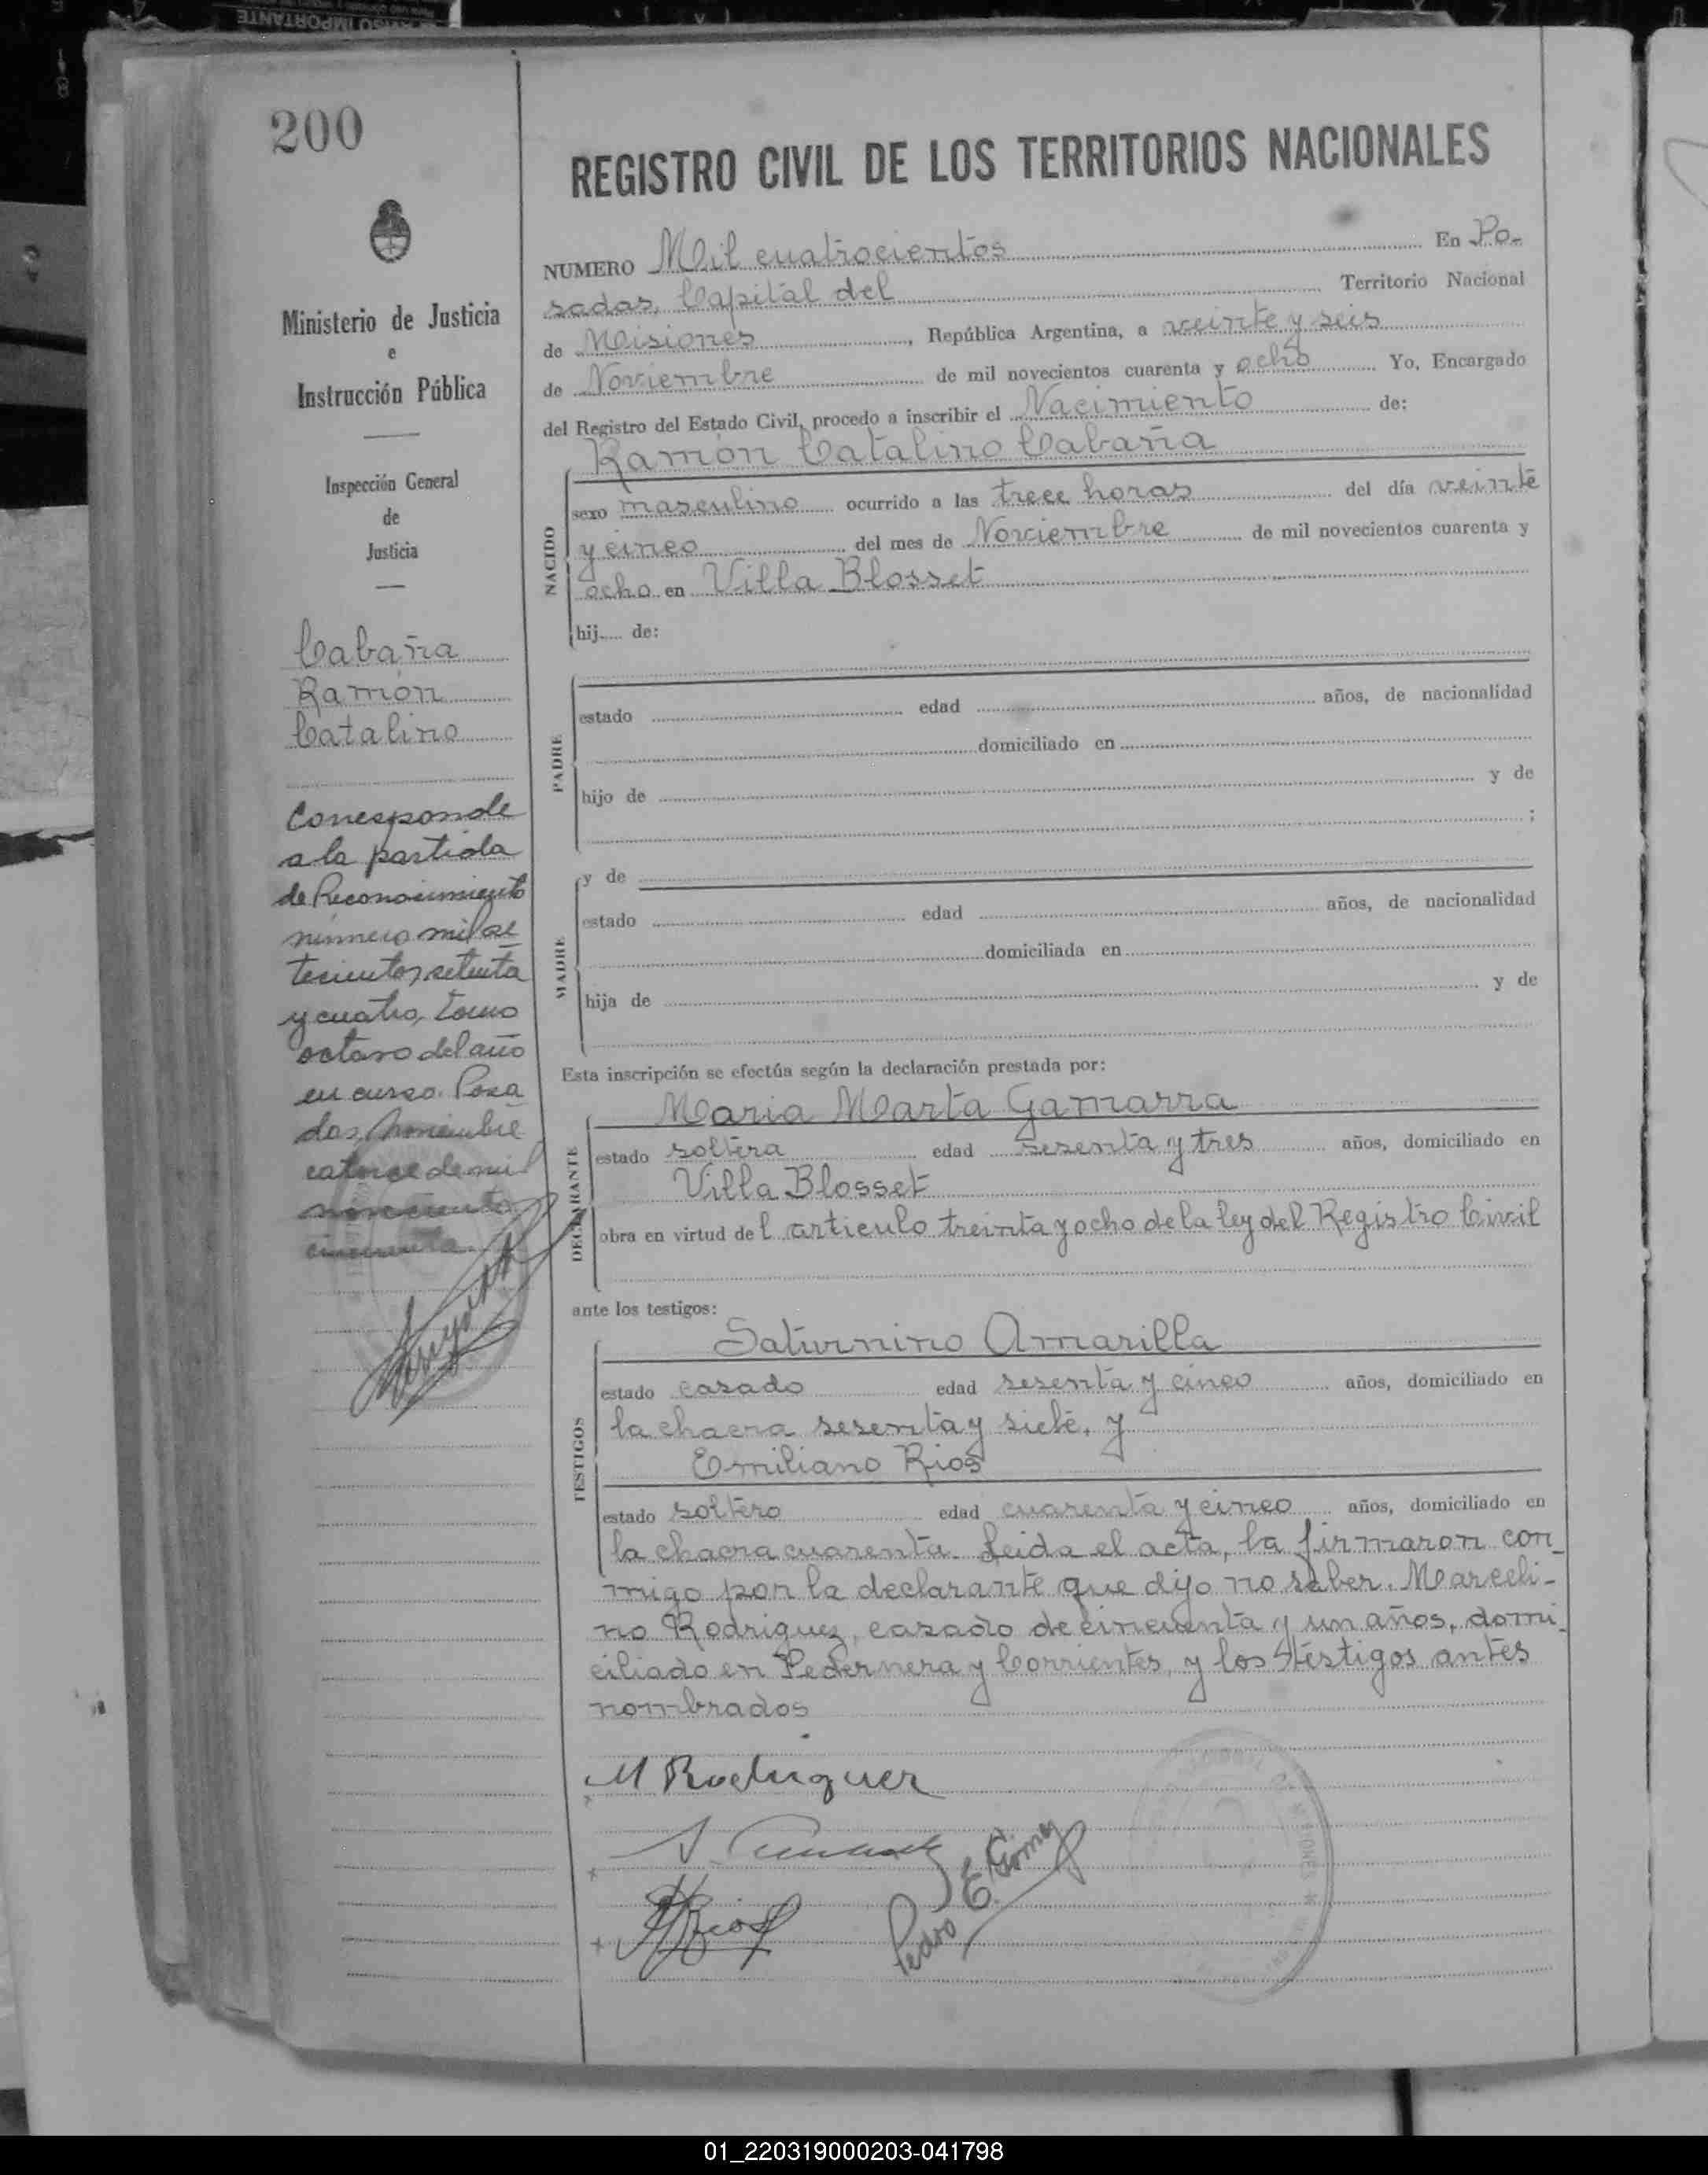 AVISO IMPORTANTE
200
REGISTRO CIVIL DE LOS TERRITORIOS NACIONALES
NUMERO Mil cuatrocientos En Po-
sadas, Capital del Territorio Nacional
de Misiones, República Argentina, a veinte y seis
de Noviembre de mil novecientos cuarenta y ocho Yo, Encargado
del Registro del Estado Civil, procedo a inscribir el Nacimiento de:
Ramón Catalino Cabaña
NACIDO
sexo masculino ocurrido a las trece horas del día veinte
y cinco del mes de Noviembre de mil novecientos cuarenta y
ocho en Villa Blosset
hij.... de:
PADRE
estado edad años, de nacionalidad
domiciliado en
hijo de y de
;
MADRE
y de
estado edad años, de nacionalidad
domiciliada en
hija de y de
Esta inscripción se efectúa según la declaración prestada por:
DECLARANTE
Maria Marta Gamarra
estado soltera edad sesenta y tres años, domiciliado en
Villa Blosset
obra en virtud del articulo treinta y ocho de la ley del Registro Civil
ante los testigos:
TESTIGOS
Saturnino Amarilla
estado casado edad sesenta y cinco años, domiciliado en
la chacra sesenta y siete, y
Emiliano Rios
estado soltero edad cuarenta y cinco años, domiciliado en
la chacra cuarenta. Leida el acta, la firmaron con-
migo por la declarante que dijo no saber. Marceli-
no Rodriguez, casado de cincuenta y un años, domi-
ciliado en Pedernera y Corrientes, y los testigos antes
nombrados
M Rodriguez
Pedro E. Gomez
Ministerio de Justicia
e
Instrucción Pública
Inspección General
de
Justicia
Cabaña
Ramón
Catalino
Corresponde
a la partida
de Reconocimiento
número mil se
tecientos setenta
y cuatro, tomo
octavo del año
en curso. Posa
das, Noviembre
catorce de mil
novecientos
cincuenta.
01_220319000203-041798